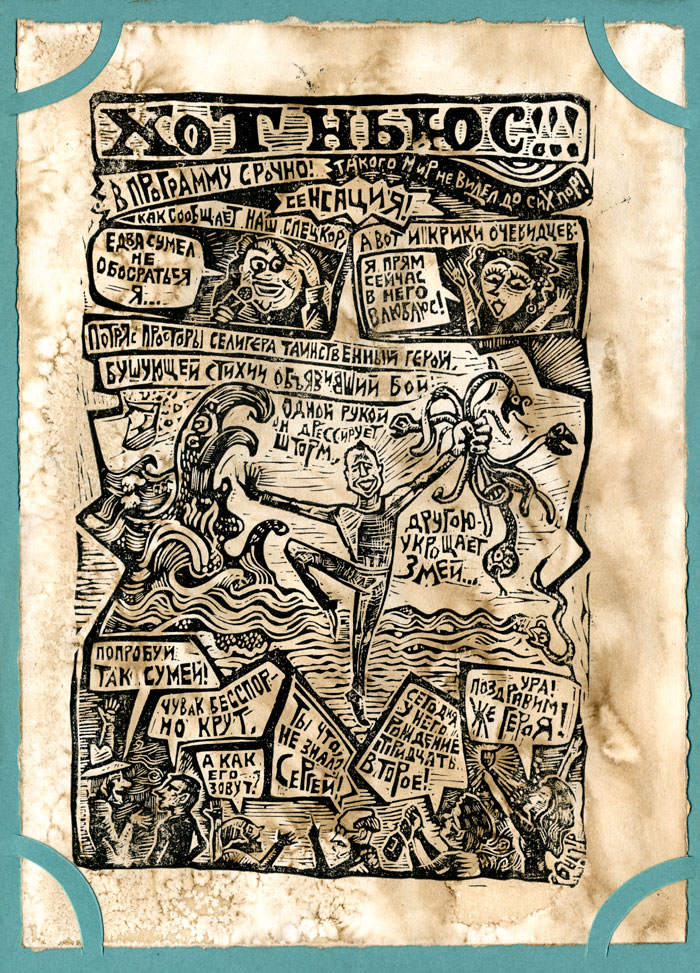 ХОТ НЬЮС!!!
В ПРОГРАММУ СРОЧНО!
ТАКОГО МИР НЕ ВИДЕЛ ДО СИХ ПОР!
СЕНСАЦИЯ!
КАК СООБЩАЕТ НАШ СПЕЦКОР,
ЕДВА СУМЕЛ
НЕ
ОБОСРАТЬСЯ
Я...
А ВОТ И КРИКИ ОЧЕВИДЦЕВ:
Я ПРЯМ
СЕЙЧАС
В НЕГО
ВЛЮБЛЮС!
ПОТРЯС ПРОСТОРЫ СЕЛИГЕРА ТАИНСТВЕННЫЙ ГЕРОЙ,
БУШУЮЩЕЙ СТИХИИ ОБЪЯВИВШИЙ БОЙ.
ОДНОЙ РУКОЙ
ОН ДРЕССИРУЕТ
ШТОРМ,
ДРУГОЮ-
УКРОЩАЕТ
ЗМЕЙ...
ПОПРОБУЙ
ТАК СУМЕЙ!
ЧУВАК БЕССПОР-
НО КРУТ.
А КАК
ЕГО
ЗОВУТ?
ТЫ ЧТО,
НЕ ЗНАЛ?
СЕРГЕЙ!
СЕГОДНЯ
У НЕГО
РОЖДЕНИЕ
ТРИДЦАТЬ
ВТОРОЕ!
УРА!
ПОЗДРАВИМ
ЖЕ ГЕРОЯ!